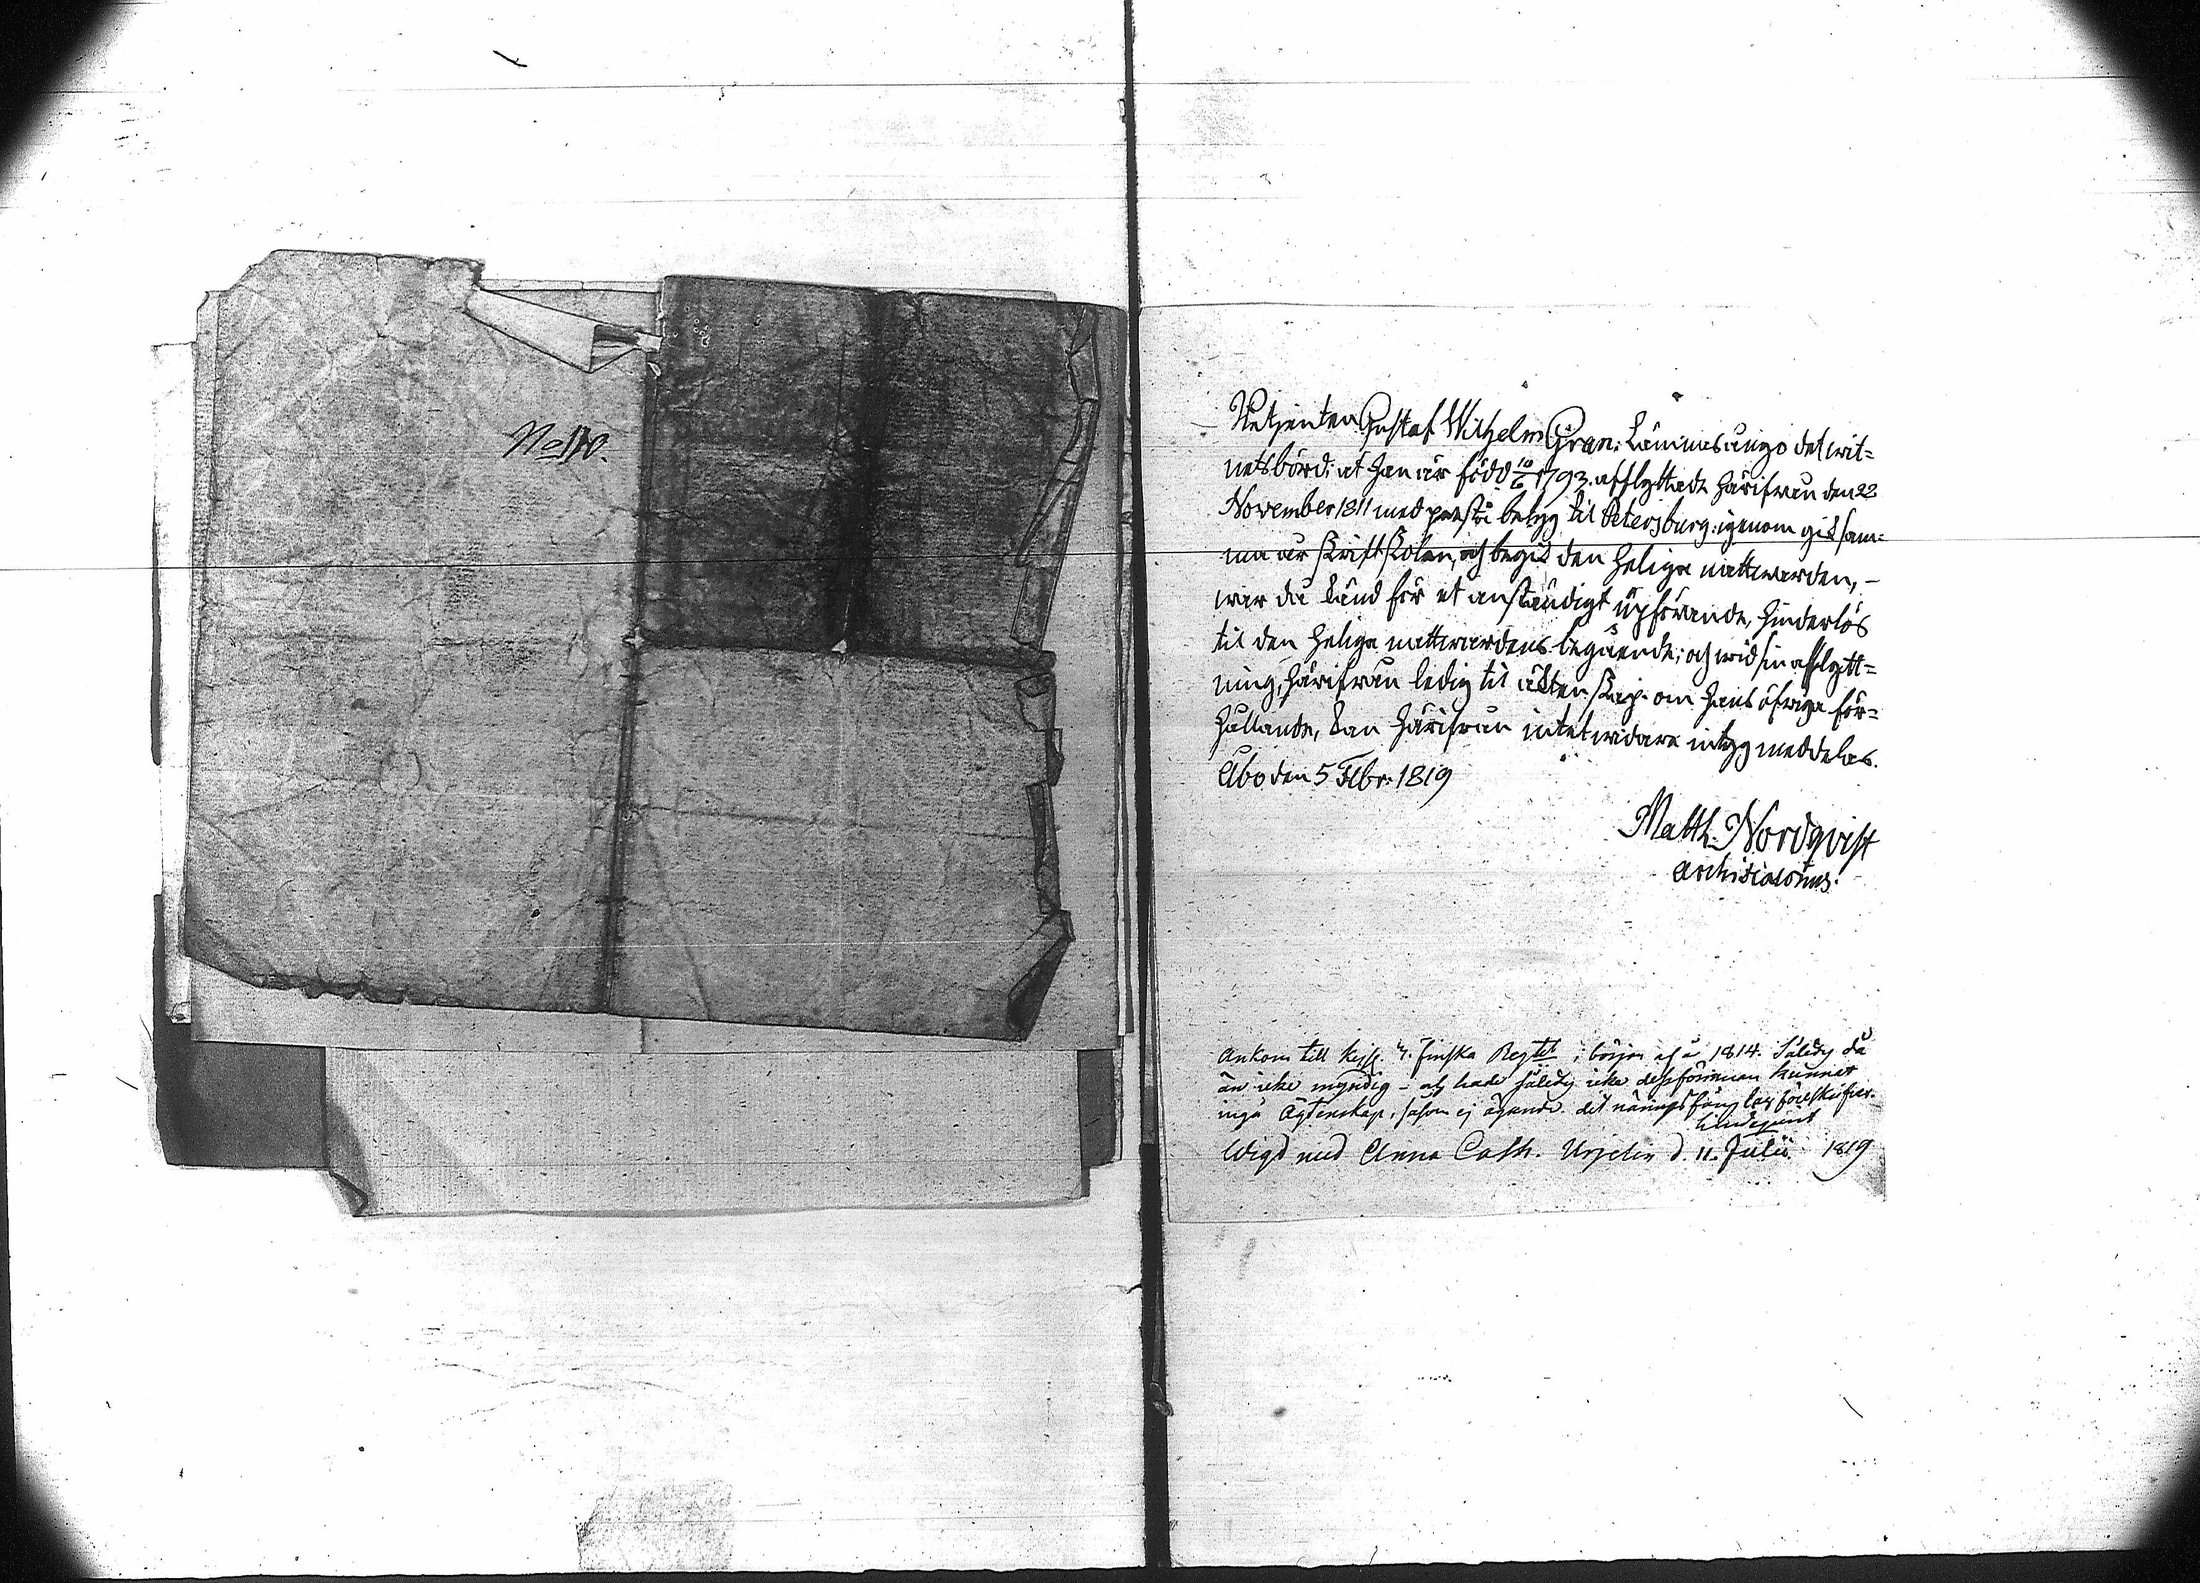 No 110.
Gustaf Wilhelm Gran: lämnas ungo det wit=
netsbörd: at han är född 10/6 1793. afflyttade härifrån den 22
November 1811 med prestå betyg til Petersburg: igenom gik sam=
ma år skriftskolan, och begik den heliga nattwarden, –
war då känd för et anständigt upförande, hinderlös
til den heliga nattwardens begående; och wid sin afflytt=
ning, härifrån ledig til äktenskap. om hans öfriga för=
hållande, kan härifrån intet widare intyg meddelas.
Åbo den 5 Febr: 1819
Matth. Nordqvist
Archidiaconus.
Ankom till Kejs. Finska Regtet i början af å 1814. Således då
än icke myndig – och hade således icke dessförinnan kunnat
ingå Ägtenskap, såsom ej ägande det lag föreskrifver.
Wigd med Anna Cath. d. 11. Julii 1819